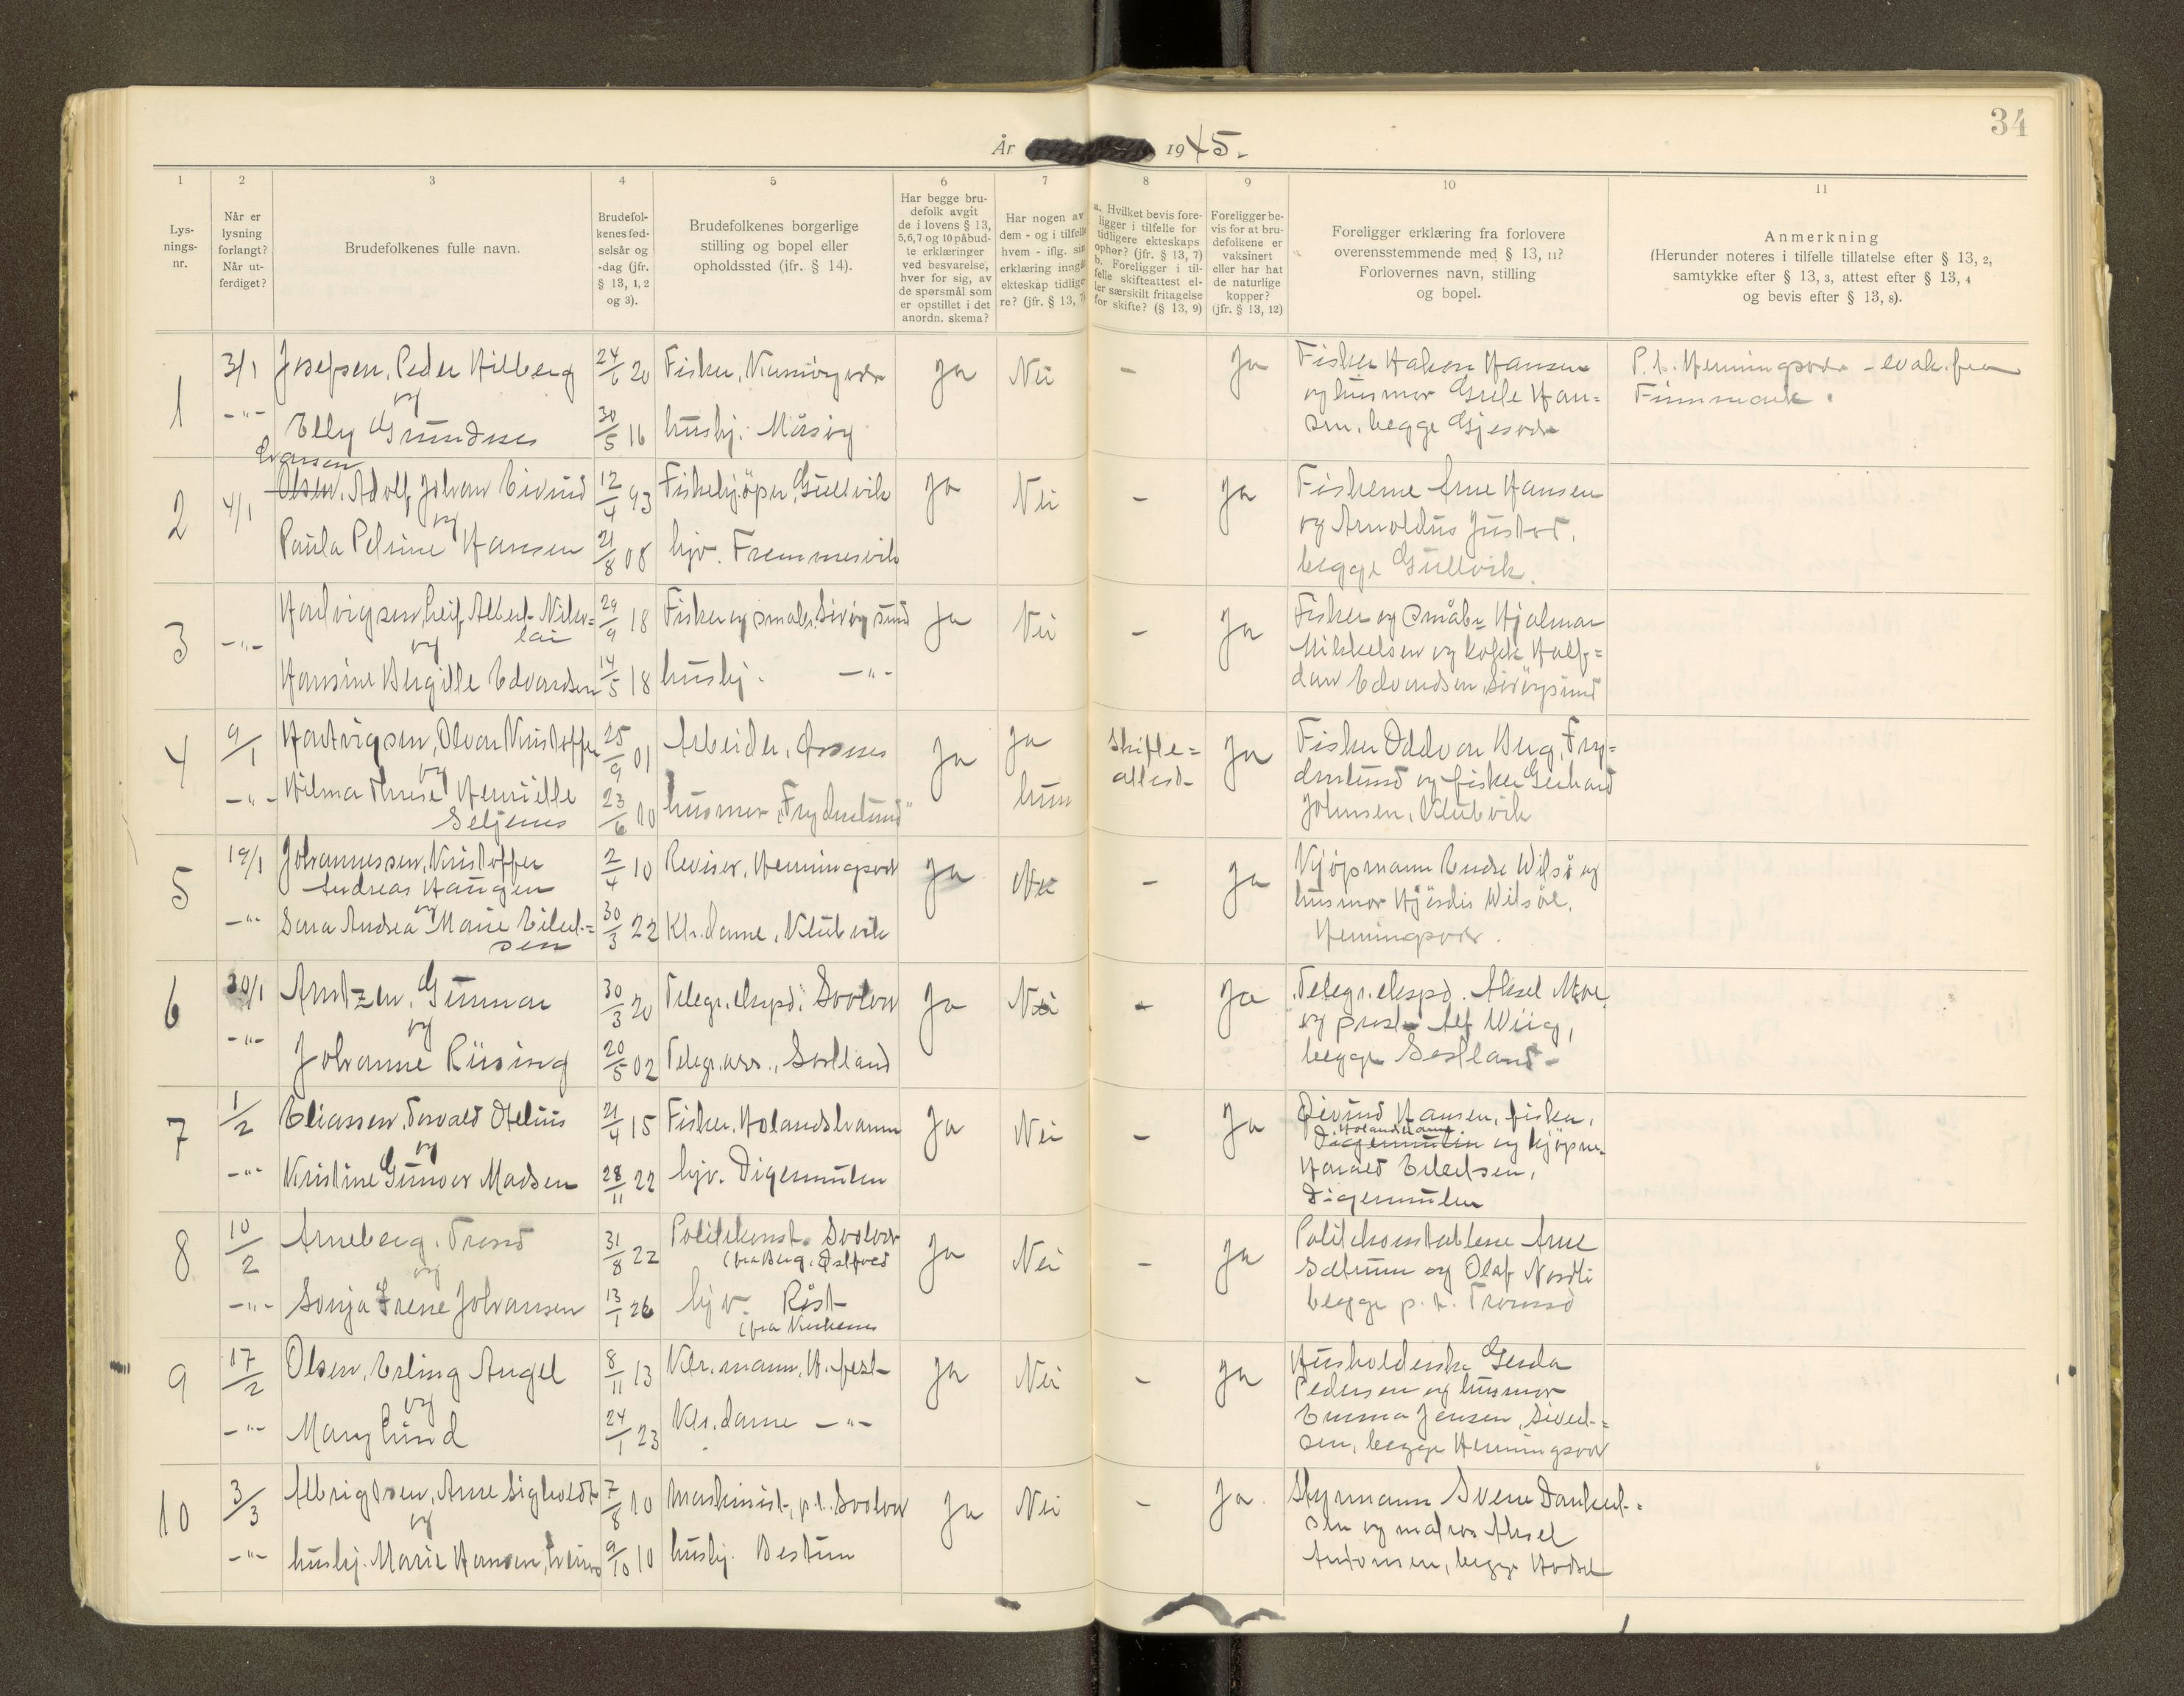 34
År 1945.
1 2 3 4 5 6 7 8 9 10 11
Lys-
nings-
nr.
Når er
lysning
forlangt?
Når ut-
ferdiget?
Brudefolkenes fulle navn.
Brudefol-
kenes fød-
selsår og
-dag (jfr.
§ 13, 1, 2
og 3).
Brudefolkenes borgerlige
stilling og bopel eller
opholdssted (jfr. § 14).
Har begge bru-
defolk avgit
de i lovens § 13,
5,6,7 og 10 påbud-
te erklæringer
ved besvarelse,
hver for sig, av
de spørsmål som
er opstillet i det
anordn. skema?
Har nogen av
dem - og i tilfelle
hvem - iflg. sin
erklæring inngått
ekteskap tidlige-
re? (jfr. § 13, 7)
a. Hvilket bevis fore-
ligger i tilfelle for
tidligere ekteskaps
ophør? (jfr. § 13, 7)
b. Foreligger i til-
felle skifteattest el-
ler særskilt fritagelse
for skifte? (§ 13, 9)
Foreligger be-
vis for at bru-
defolkene er
vaksinert
eller har hat
de naturlige
kopper?
(jfr. § 13, 12)
Foreligger erklæring fra forlovere
overensstemmende med § 13, 11?
Forlovernes navn, stilling
og bopel.
Anmerkning
(Herunder noteres i tilfelle tillatelse efter § 13, 2,
samtykke efter § 13, 3, attest efter § 13, 4
og bevis efter § 13, 8).
1
3/1
-"-
Josefsen, Peder Hilberg
og
Elly Grundnes
24/6 20
30/5 16
Fisker,
hushj. Måsøy
Ja
Nei
-
Ja
Fisker Hakon Hansen
og husmor Gule Han=
sen, begge Gjesvær
P.t. Henningsvær - evak. fra
Finnmark.
2
4/1
Evansen
Olsen, Adolf Johan Eivind
og
Paula Petrine Hansen
12/4 93
21/8 08
Fiskekjøper, Gullvik
hjv. Fremmesvik
Ja
Nei
-
Ja
Fiskerne Arne Hansen
og Arnoldus Justad,
begge Gullvik.
3
-"-
Hartvigsen, Leif Albert Niko=
lai
og
Hansine Bergitte Edvardsen
29/9 18
14/5 18
Fisker og småbr. Sirøysund
hushj. -"-
Ja
Nei
-
Ja
Fisker og småbr. Hjalmar
Mikkelsen og kokk Half=
dan Edvardsen, Sirøysund
4
9/1
-"-
Hartvigsen, Olvar Kristoffer
og
Hilma Therese Henriette
Seljenes
25/9 01
23/6 10
Arbeider,
husmor, Frydenlund
Ja
Ja
hun
Skifte=
attest
Ja
Fisker Oddvar Berg, Fry=
denlund og fisker Gerhard
Johnsen, Klubvik
5
19/1
-"-
Johannessen, Kristoffer
Andreas Haugen
og
Sara Andrea Marie Eilert=
sen
2/4 10
30/3 22
Revisor, Henningsvær
Ktr.dame, Klubvik
Ja
Nei
-
Ja
Kjøpmann Endre Wilsø og
husmor Hjørdis Wilsøe,
Henningsvær.
6
30/1
-"-
Arntzen, Gunnar
og
Johanne Rüsing
30/3 20
20/5 02
Telegr.eksped. Svolvær
Telegr.ass., Sortland
Ja
Nei
-
Ja
Telegr.ekspd. Aksel Moe
og prest Alf Wiig,
begge Sortland -
7
1/2
-"-
Eliassen, Torvald Otelius
og
Kristine Gunvor Madsen
21/4 15
28/11 22
Fisker, Holandshamn
hjv. Digermulen
Ja
Nei
-
Ja
Eivind Hansen, fisker,
Holandshamn
Digermulen og kjøpm.
Harald Eilertsen,
Digermulen
8
10/2
-"-
Arneberg, Trond
og
Sonja Irene Johansen
31/8 22
13/1 26
Politikonst. Svolvær
(fra Berg, Østfold
hjv. Røst
(fra Kirkenes
Ja
Nei
-
Ja
Politikonstablene Arne
Sætrum og Olaf Nordli
begge p.t. Tromsø
9
17/2
-"-
Olsen, Erling Angel
og
Mary Lund
8/11 13
24/1 23
Ktr.mann, H.fest
Ktr.dame -"-
Ja
Nei
-
Ja
Husholderske Gerda
Pedersen og husmor
Emma Jensen, Sivert=
sen, begge Henningsvær
10
3/3
-"-
Albrigtsen, Arne Sigholdt
og
hushj. Marie Hansen,
7/8 10
9/10 10
Maskinist, p.t. Svolvær
hushj. Bestum
Ja
Nei
-
Ja.
Styrmann Sverre Dankert=
sen og matros Aksel
Antonsen, begge Hadsel